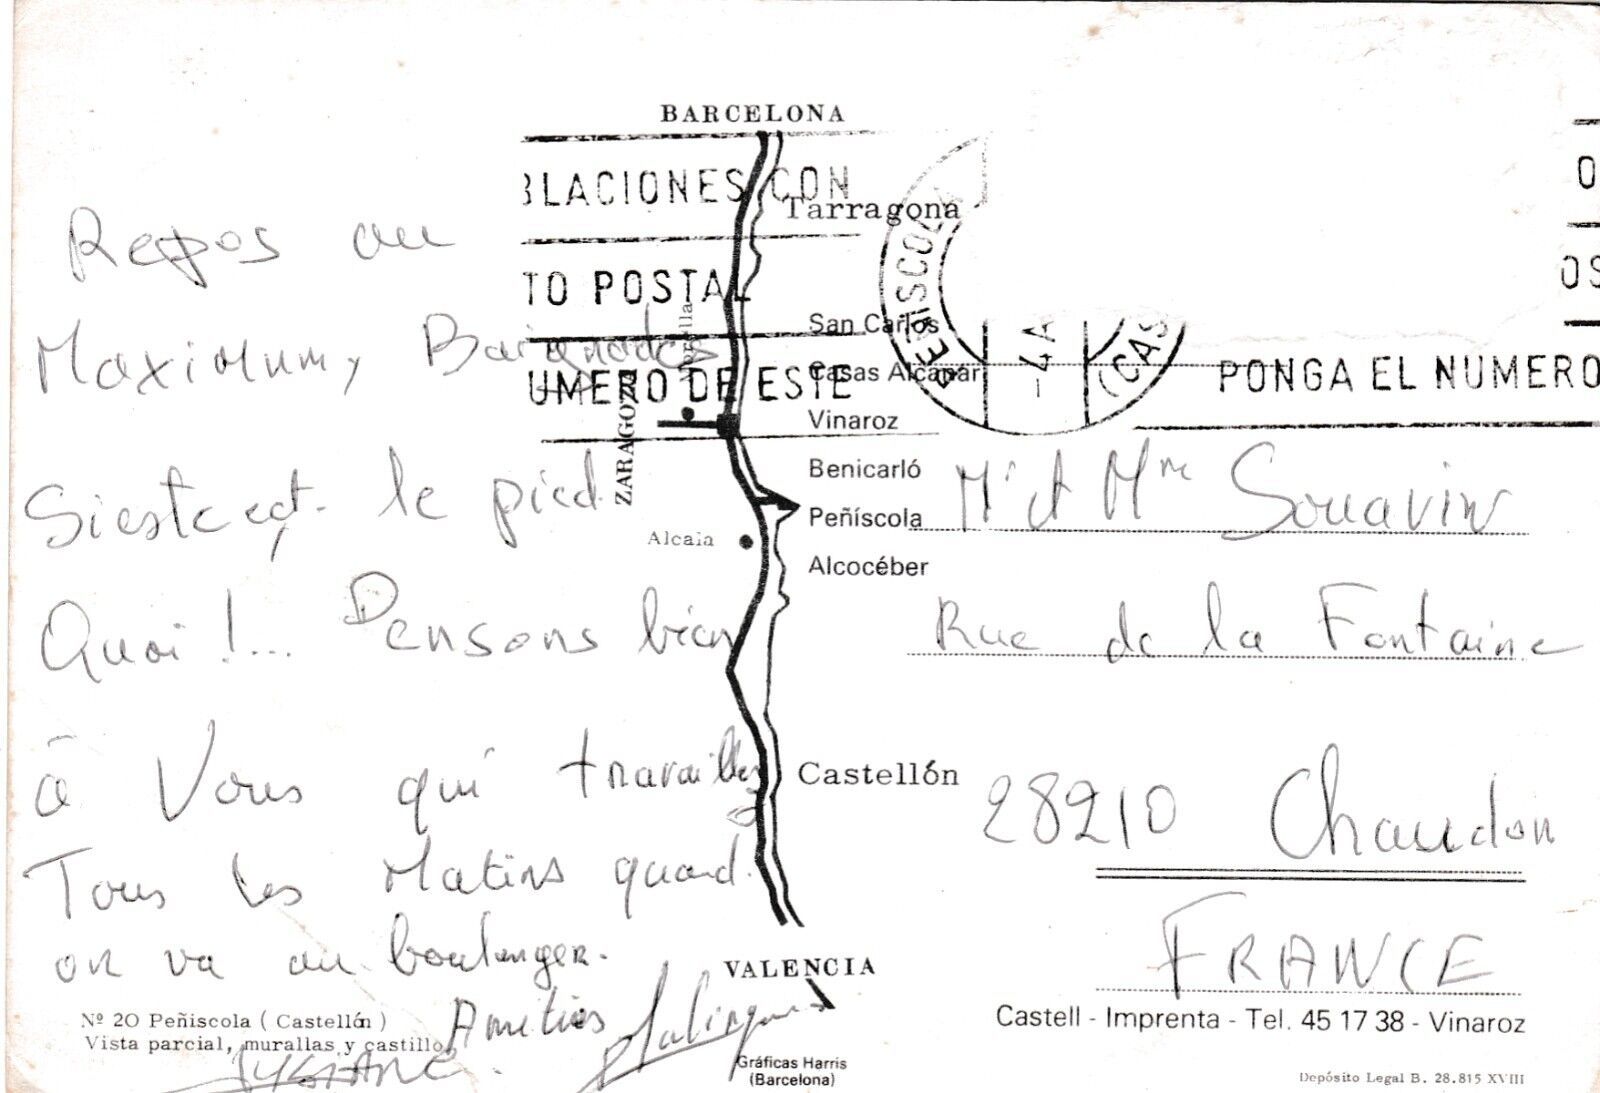 BARCELONA
BLACIONES CON
Tarragona
TO POSTAL
UMERO DE ESTE
O
OS
PONGA EL NUMERO
PEÑISCOLA
-4 A
(CAS
San Carlos
Casas Alcanar
Vinaroz
Benicarló
Peñíscola
Alcocéber
ZARAGOZA
Alcala
Castellón
VALENCIA
Repos au
Maximum, Baignades
Sieste et le pied
Quoi !... Pensons bien
à Vous qui travaillez
Tous les Matins quand
on va au boulanger.
Amitiés
Mr et Mme Souavin
Rue de la Fontaine
28210 Chaudon
FRANCE
Nº 20 Peñiscola ( Castellón )
Vista parcial, murallas y castillo
Gráficas Harris
(Barcelona)
Castell - Imprenta - Tel. 45 17 38 - Vinaroz
Depósito Legal B. 28.815 XVIII